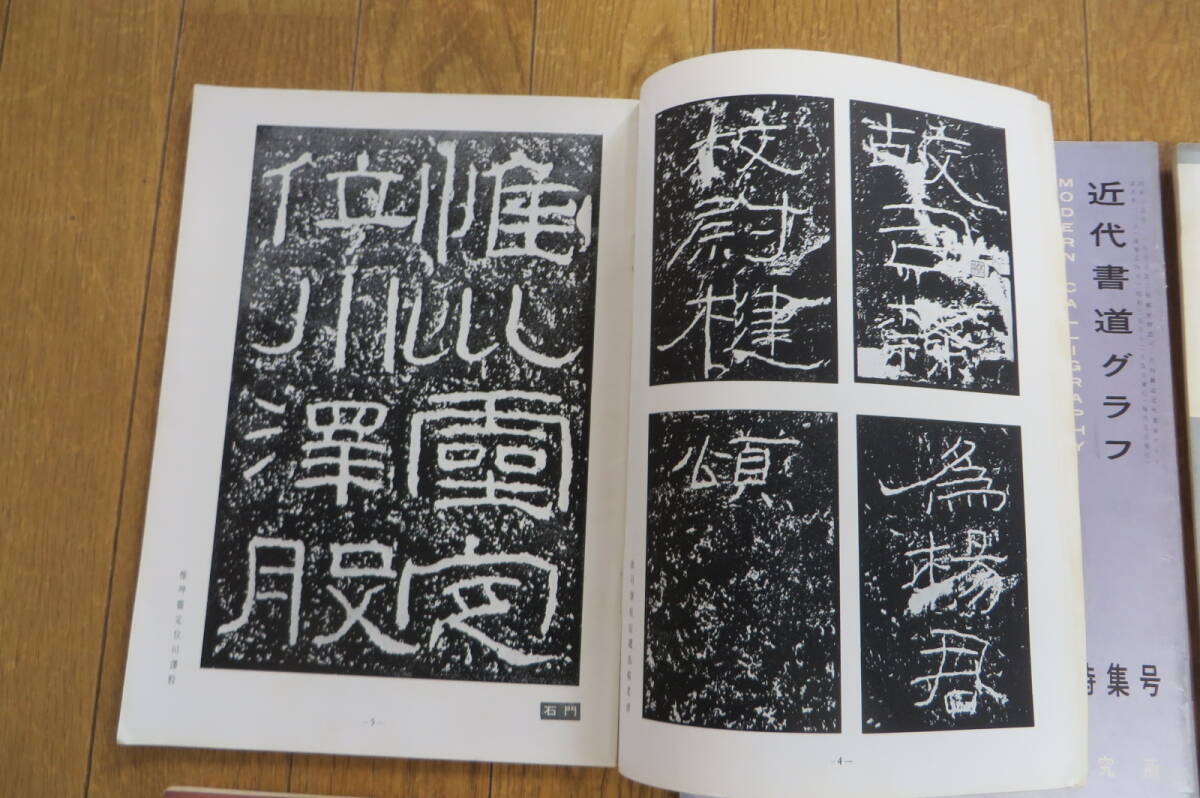 近代書道グラフ
MODERN CALLIGRAPHY
特集号
故司隸
校尉楗
為楊君
頌
故司隸校尉楗為楊君頌
-4-
惟巛靈定
位川澤股
惟坤靈定位川澤股
石門
-5-